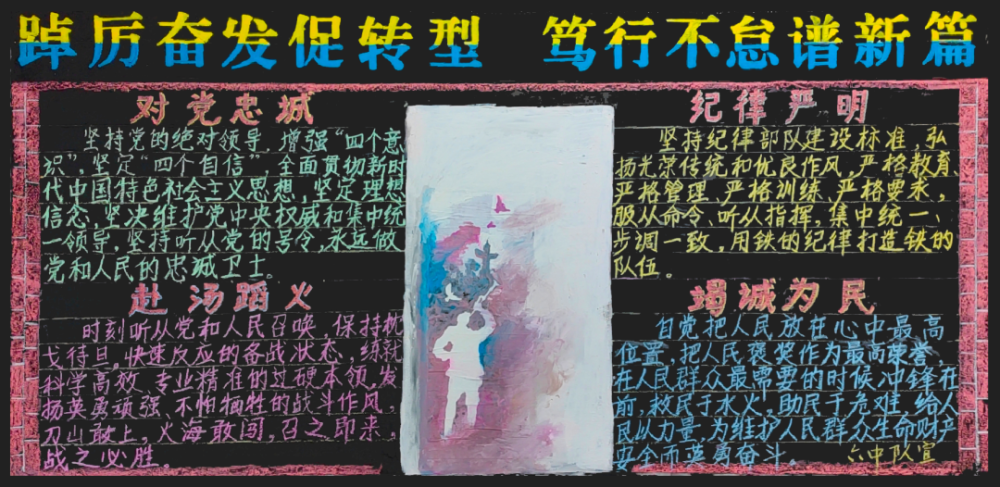 踔厉奋发促转型 笃行不怠谱新篇
对党忠诚
坚持党的绝对领导，增强“四个意
识”，坚定“四个自信”全面贯彻新时
代中国特色社会主义思想，坚定理想
信念，坚决维护党中央权威和集中统
一领导，坚持听从党的号令，永远做
党和人民的忠诚卫士。
赴汤蹈火
时刻听从党和人民召唤，保持枕
戈待旦，快速反应的备战状态，练就
科学高效、专业精准的过硬本领，发
扬英勇顽强、不怕牺牲的战斗作风，
刀山敢上，火海敢闯，召之即来，
战之必胜。
纪律严明
坚持纪律部队建设标准，弘
扬光荣传统和优良作风，严格教育、
严格管理、严格训练、严格要求，
服从命令、听从指挥，集中统一、
步调一致，用铁的纪律打造铁的
队伍。
竭诚为民
自觉把人民放在心中最高
位置，把人民褒奖作为最高荣誉，
在人民群众最需要的时候冲锋在
前，救民于水火，助民于危难，给人
民以力量，为维护人民群众生命财产
安全而英勇奋斗。
六中队宣